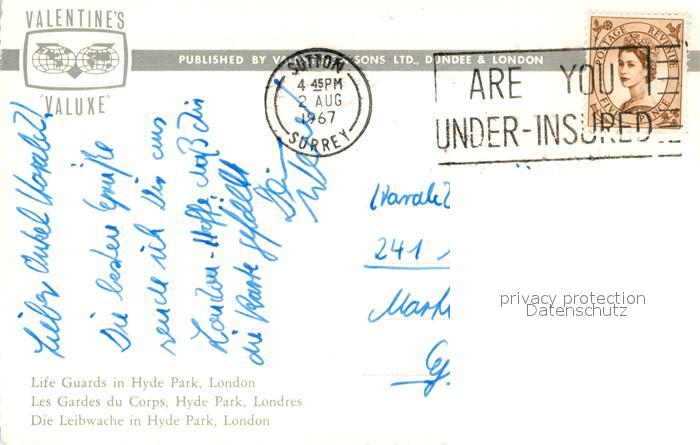 VALENTINE'S
"VALUXE"
PUBLISHED BY VALENTINE & SONS LTD., DUNDEE & LONDON
SUTTON
4 45PM
2 AUG
1967
SURREY
ARE YOU
UNDER-INSURED
POSTAGE REVENUE
Lieber Onkel
Die besten Grüße
sende ich Dir aus
London - Hoffe daß Dir
die Karte gefällt
Dein
241
Life Guards in Hyde Park, London
Les Gardes du Corps, Hyde Park, Londres
Die Leibwache in Hyde Park, London
privacy protection
Datenschutz